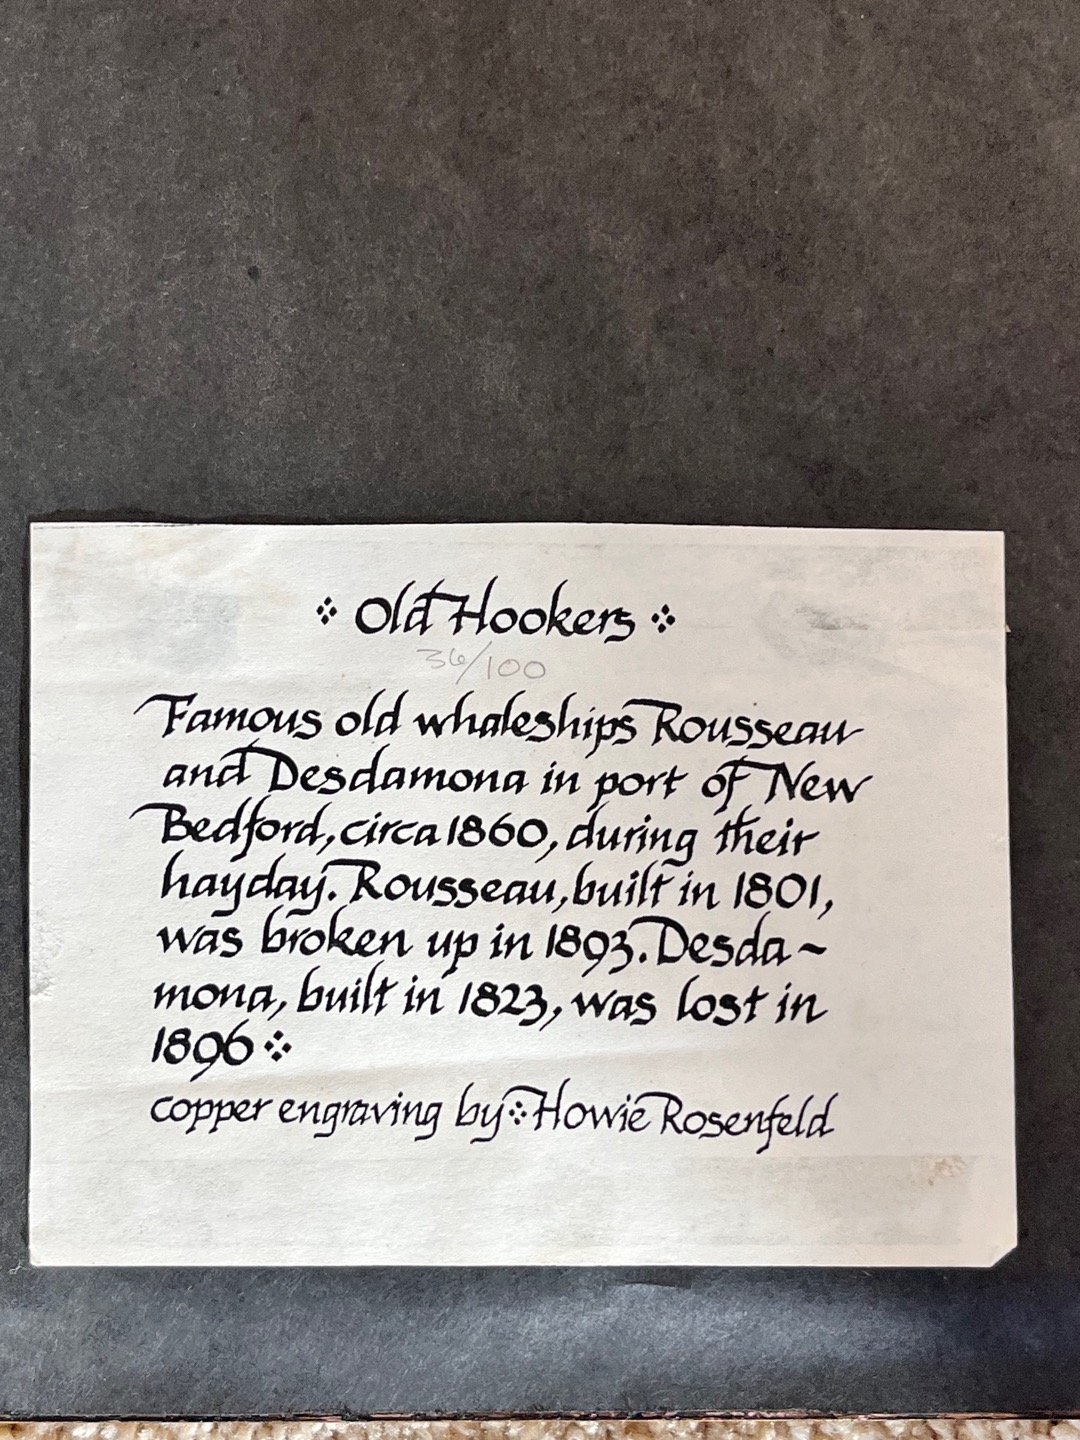 Old Hookers
36/100
Famous old whaleships Rousseau
and Desdamona in port of New
Bedford, circa 1860, during their
hayday. Rousseau, built in 1801,
was broken up in 1893. Desda~
mona, built in 1823, was lost in
1896
copper engraving by Howie Rosenfeld